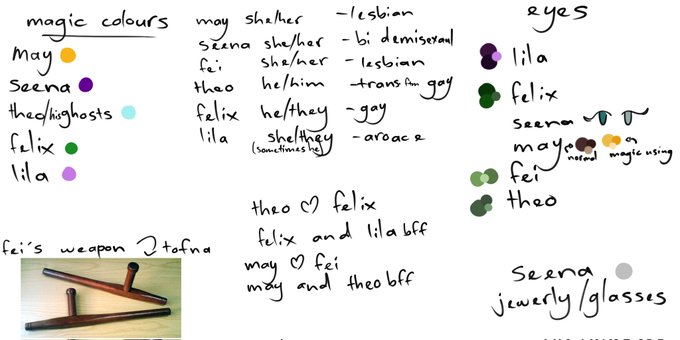 magic colours
may
seena
theo/his ghosts
felix
lila
may she/her -lesbian
seena she/her - bi demisexual
fei she/her - lesbian
theo he/him -trans ftm gay
felix he/they - gay
lila she/they -aroace
(sometimes he)
eyes
lila
felix
seena
may
normal magic using
fei
theo
theo ♡ felix
felix and lila bff
may ♡ fei
may and theo bff
fei's weapon tofna
seena
jewerly/glasses